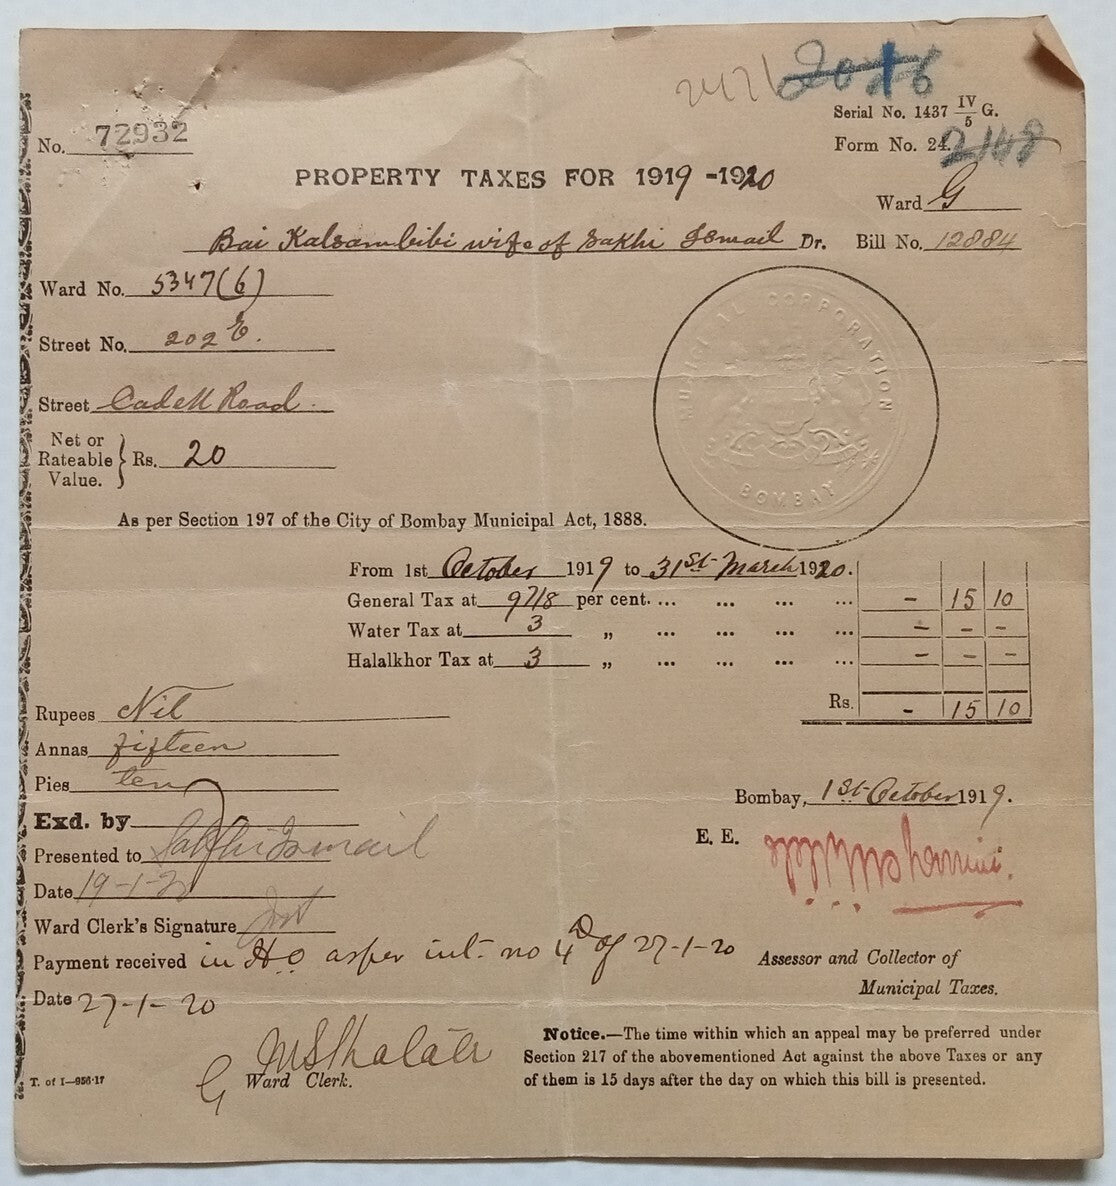 2471 2026
Serial No. 1437 IV/5 G.
No. 72932
Form No. 24. 2148
PROPERTY TAXES FOR 1919 -1920
Ward G
Bai Kalsambibi wife of Sakhi Ismail Dr. Bill No. 12884
Ward No. 5347(6)
Street No. 202 E.
Street Cadell Road.
Net or
Rateable } Rs. 20
Value.
MUNICIPAL CORPORATION
BOMBAY
As per Section 197 of the City of Bombay Municipal Act, 1888.
From 1st October 1919 to 31st March 1920.
General Tax at 97/8 per cent. ... ... ... ... - 15 10
Water Tax at 3 „ ... ... ... ... - - -
Halalkhor Tax at 3 „ ... ... ... ... - - -
Rs. - 15 10
Rupees Nil
Annas fifteen
Pies ten
Bombay, 1st October 1919.
Exd. by
E. E.
Presented to Sakhi Ismail
Date 19-1-20
Ward Clerk's Signature
Payment received in H.O as per int. no 4D of 27-1-20
Assessor and Collector of
Municipal Taxes.
Date 27-1-20
Notice.—The time within which an appeal may be preferred under
Section 217 of the abovementioned Act against the above Taxes or any
of them is 15 days after the day on which this bill is presented.
G Ward Clerk.
T. of I—956·17